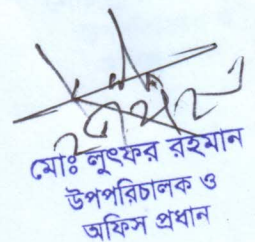 মোঃ লুৎফর রহমান
উপপরিচালক ও
অফিস প্রধান